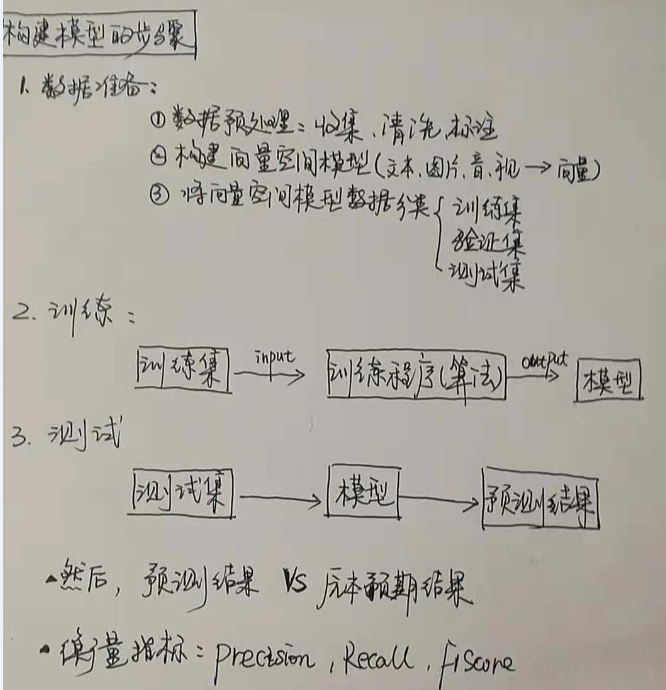 构建模型的步骤
1. 数据准备：
① 数据预处理：收集、清洗、标注
② 构建向量空间模型(文本、图片、音、视 → 向量)
③ 将向量空间模型数据分类 { 训练集
验证集
测试集
2. 训练：
训练集 input → 训练程序(算法) output → 模型
3. 测试
测试集 → 模型 → 预测结果
▲然后，预测结果 VS 原本预期结果
▲衡量指标：Precision，Recall，F1Score